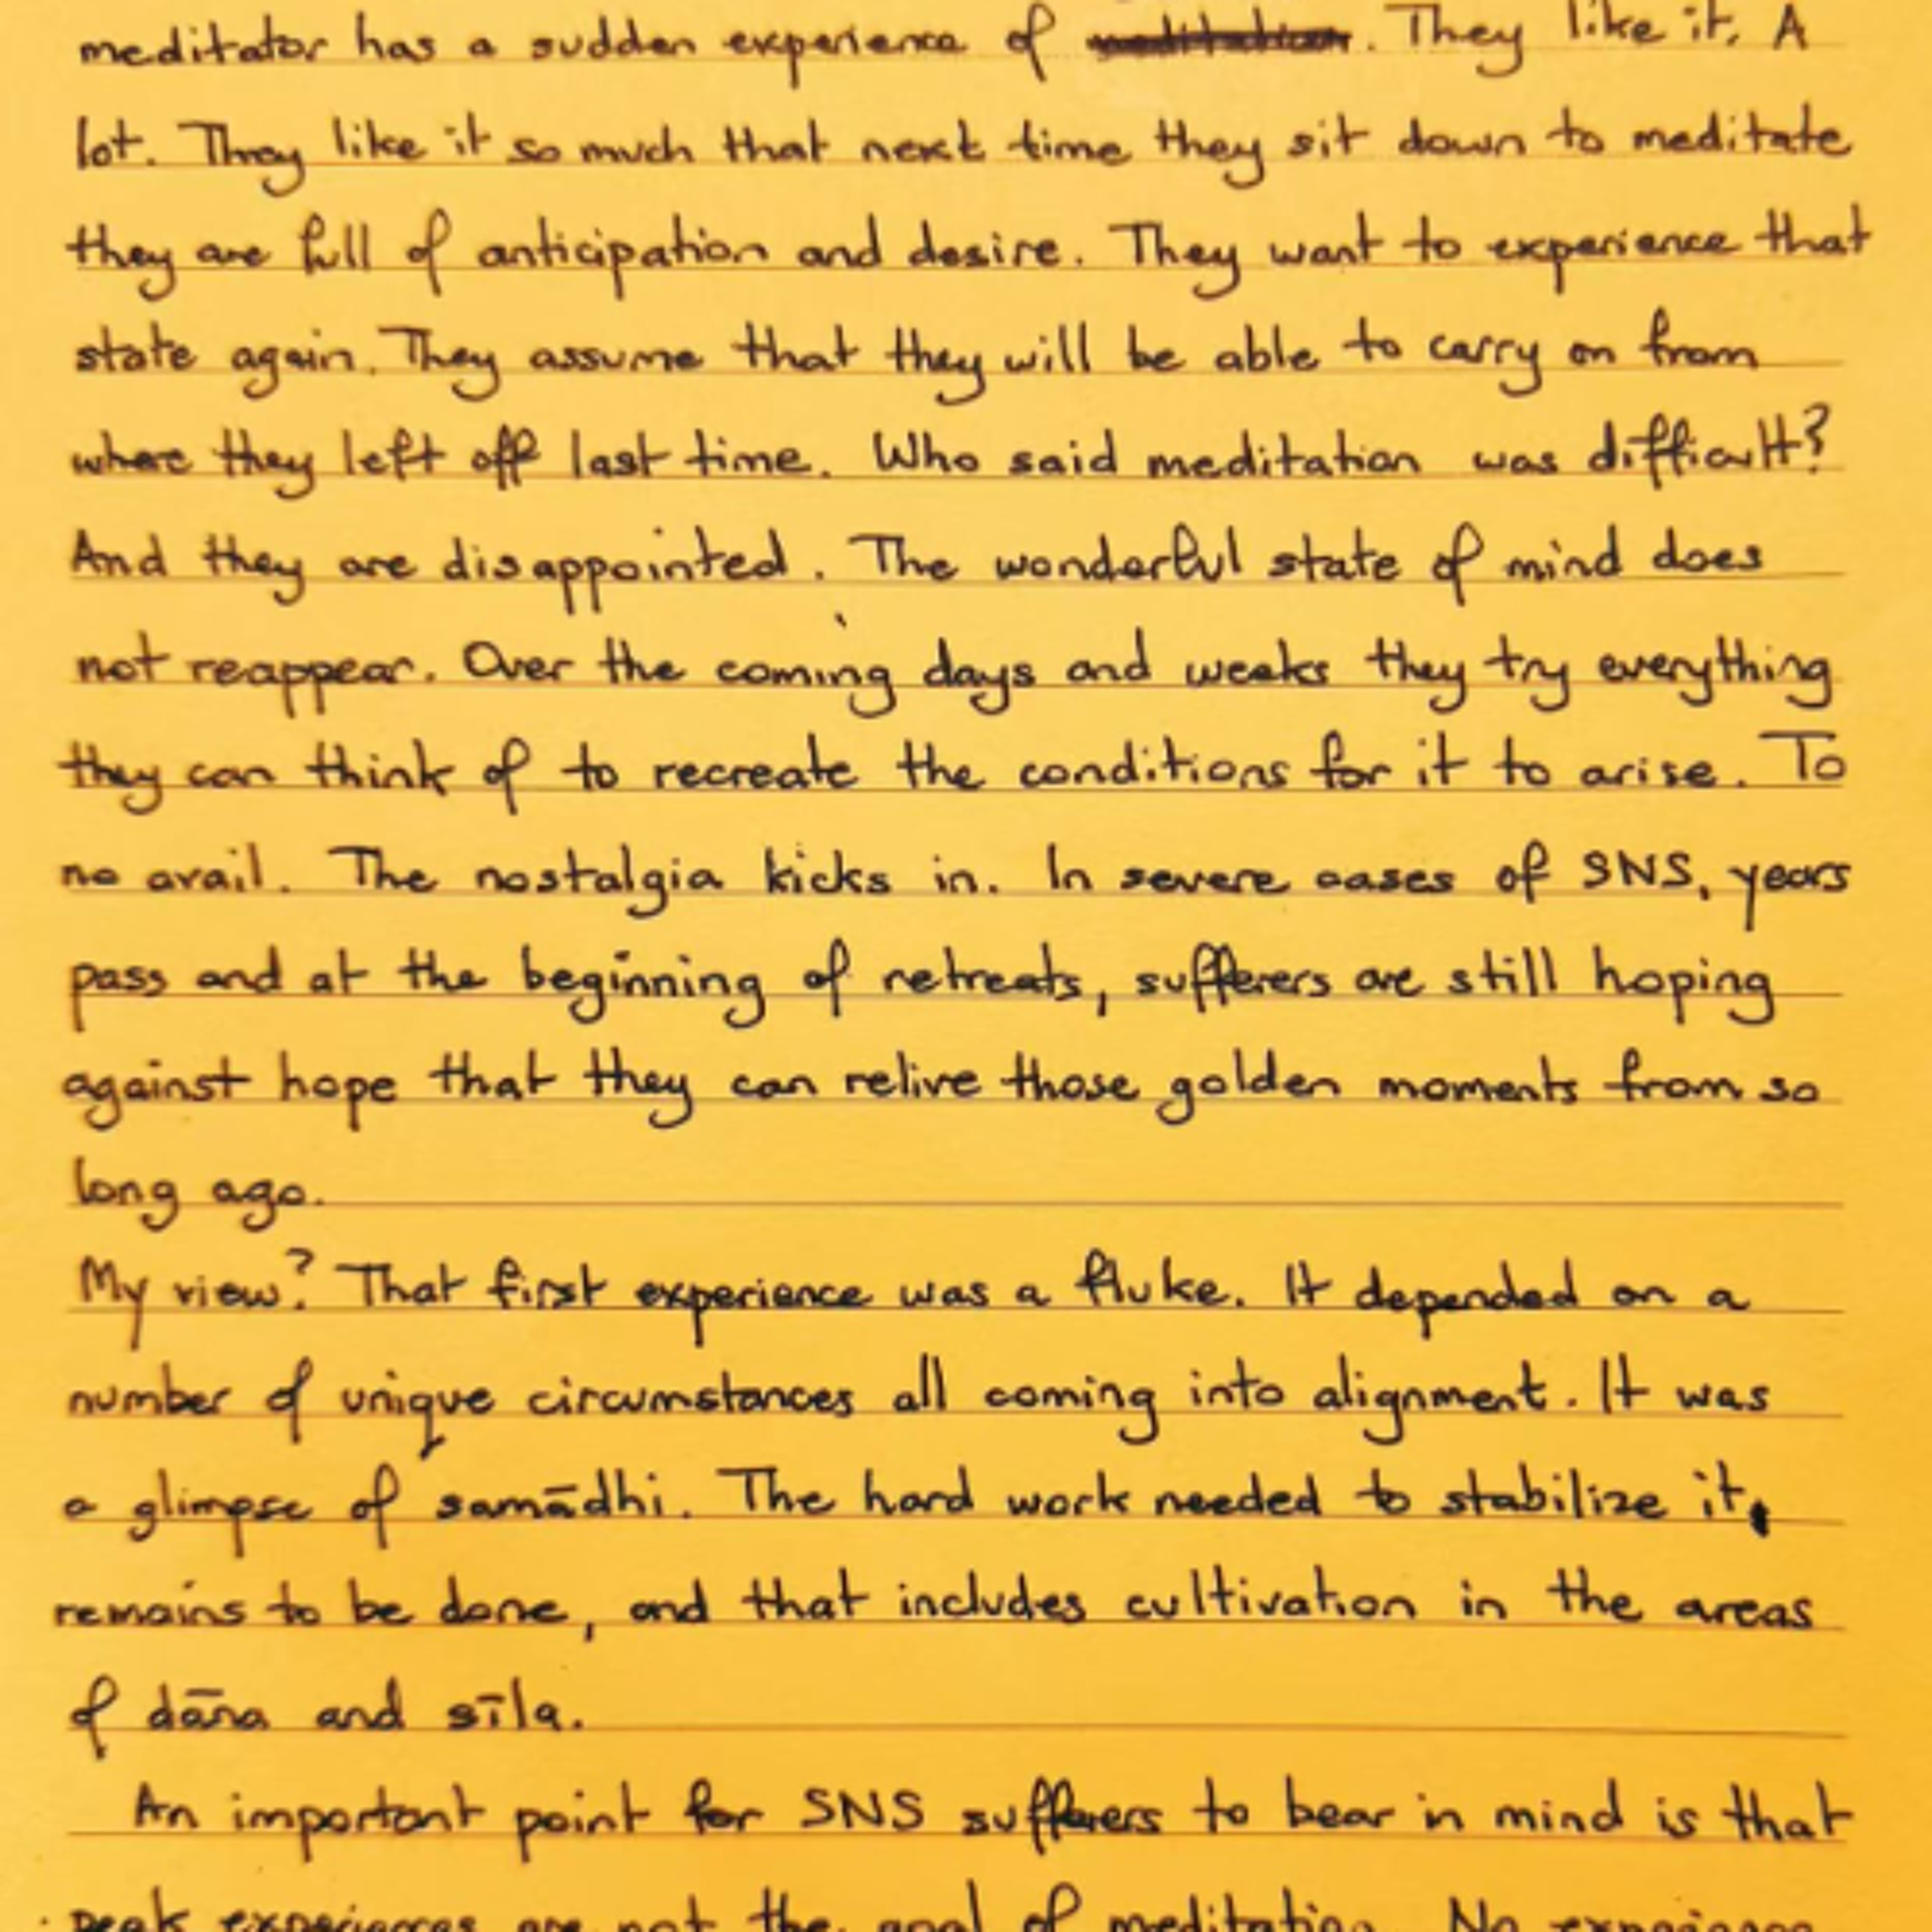 meditator has a sudden experience of meditation. They like it. A
lot. They like it so much that next time they sit down to meditate
they are full of anticipation and desire. They want to experience that
state again. They assume that they will be able to carry on from
where they left off last time. Who said meditation was difficult?
And they are disappointed. The wonderful state of mind does
not reappear. Over the coming days and weeks they try everything
they can think of to recreate the conditions for it to arise. To
no avail. The nostalgia kicks in. In severe cases of SNS, years
pass and at the beginning of retreats, sufferers are still hoping
against hope that they can relive those golden moments from so
long ago.
My view? That first experience was a fluke. It depended on a
number of unique circumstances all coming into alignment. It was
a glimpse of samādhi. The hard work needed to stabilize it,
remains to be done, and that includes cultivation in the areas
of dāna and sīla.
An important point for SNS sufferers to bear in mind is that
peak experiences are not the goal of meditation. No experience